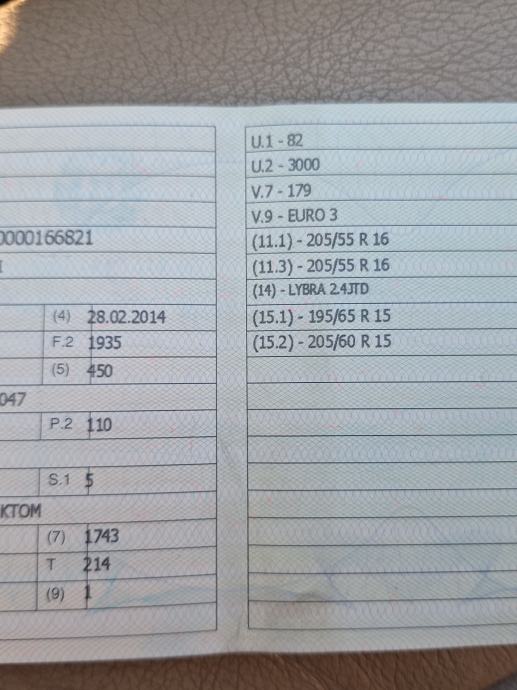 0000166821
(4) 28.02.2014
F.2 1935
(5) 450
047
P.2 110
S.1 5
KTOM
(7) 1743
T 214
(9) 1
U.1 - 82
U.2 - 3000
V.7 - 179
V.9 - EURO 3
(11.1) - 205/55 R 16
(11.3) - 205/55 R 16
(14) - LYBRA 2.4JTD
(15.1) - 195/65 R 15
(15.2) - 205/60 R 15